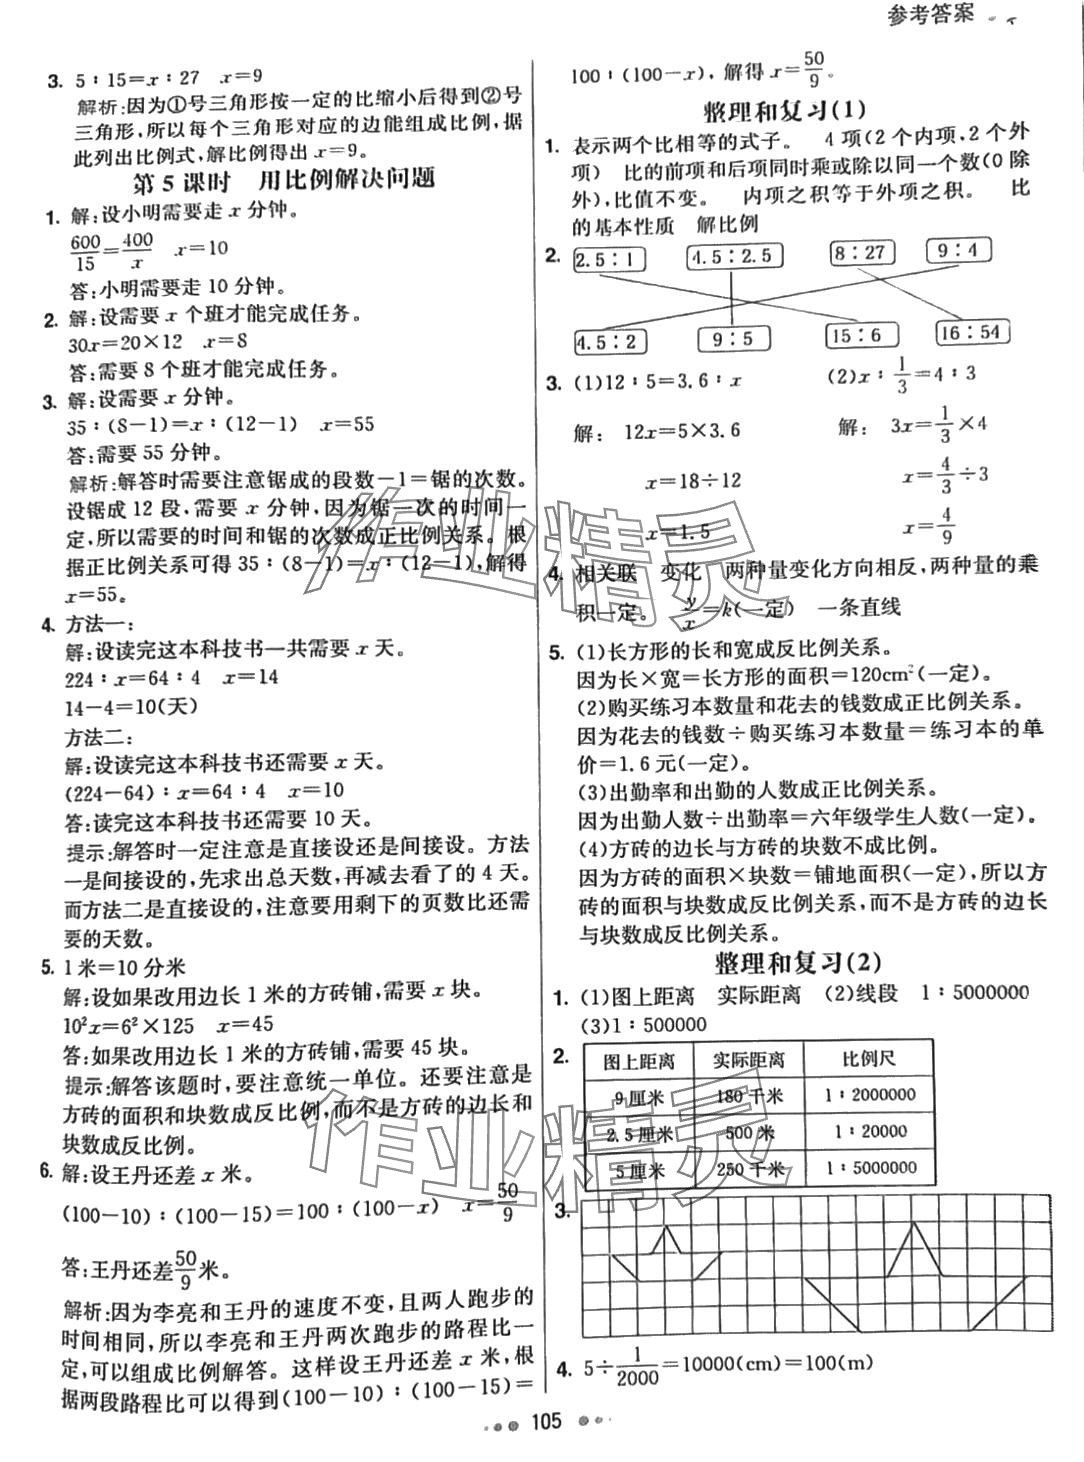 参考答案
3. 5∶15=x∶27　x=9
解析:因为①号三角形按一定的比缩小后得到②号
三角形,所以每个三角形对应的边能组成比例,据
此列出比例式,解比例得出 x=9。
第 5 课时　用比例解决问题
1. 解:设小明需要走 x 分钟。
600/15=400/x　x=10
答:小明需要走 10 分钟。
2. 解:设需要 x 个班才能完成任务。
30x=20×12　x=8
答:需要 8 个班才能完成任务。
3. 解:设需要 x 分钟。
35∶(8-1)=x∶(12-1)　x=55
答:需要 55 分钟。
解析:解答时需要注意锯成的段数-1=锯的次数。
设锯成 12 段,需要 x 分钟,因为锯一次的时间一
定,所以需要的时间和锯的次数成正比例关系。根
据正比例关系可得 35∶(8-1)=x∶(12-1),解得
x=55。
4. 方法一:
解:设读完这本科技书一共需要 x 天。
224∶x=64∶4　x=14
14-4=10(天)
方法二:
解:设读完这本科技书还需要 x 天。
(224-64)∶x=64∶4　x=10
答:读完这本科技书还需要 10 天。
提示:解答时一定注意是直接设还是间接设。方法
一是间接设的,先求出总天数,再减去看了的 4 天。
而方法二是直接设的,注意要用剩下的页数比还需
要的天数。
5. 1 米=10 分米
解:设如果改用边长 1 米的方砖铺,需要 x 块。
10²x=6²×125　x=45
答:如果改用边长 1 米的方砖铺,需要 45 块。
提示:解答该题时,要注意统一单位。还要注意是
方砖的面积和块数成反比例,而不是方砖的边长和
块数成反比例。
6. 解:设王丹还差 x 米。
(100-10)∶(100-15)=100∶(100-x)　x=50/9
答:王丹还差50/9米。
解析:因为李亮和王丹的速度不变,且两人跑步的
时间相同,所以李亮和王丹两次跑步的路程比一
定,可以组成比例解答。这样设王丹还差 x 米,根
据两段路程比可以得到(100-10)∶(100-15)=
100∶(100-x),解得 x=50/9。
整理和复习(1)
1. 表示两个比相等的式子。　4 项(2 个内项,2 个外
项)　比的前项和后项同时乘或除以同一个数(0 除
外),比值不变。　内项之积等于外项之积。　比
的基本性质　解比例
2. 2.5∶1　4.5∶2.5　8∶27　9∶4
4.5∶2　9∶5　15∶6　16∶54
3. (1)12∶5=3.6∶x　(2)x∶1/3=4∶3
解:　12x=5×3.6　解:　3x=1/3×4
x=18÷12　x=4/3÷3
x=1.5　x=4/9
4. 相关联　变化　两种量变化方向相反,两种量的乘
积一定。　y/x=k(一定)　一条直线
5. (1)长方形的长和宽成反比例关系。
因为长×宽=长方形的面积=120cm²(一定)。
(2)购买练习本数量和花去的钱数成正比例关系。
因为花去的钱数÷购买练习本数量=练习本的单
价=1.6 元(一定)。
(3)出勤率和出勤的人数成正比例关系。
因为出勤人数÷出勤率=六年级学生人数(一定)。
(4)方砖的边长与方砖的块数不成比例。
因为方砖的面积×块数=铺地面积(一定),所以方
砖的面积与块数成反比例关系,而不是方砖的边长
与块数成反比例关系。
整理和复习(2)
1. (1)图上距离　实际距离　(2)线段　1∶5000000
(3)1∶500000
2. 图上距离　实际距离　比例尺
9 厘米　180 千米　1∶2000000
2.5 厘米　500 米　1∶20000
5 厘米　250 千米　1∶5000000
3.
4. 5÷1/2000=10000(cm)=100(m)
105
作业精灵
作业精灵